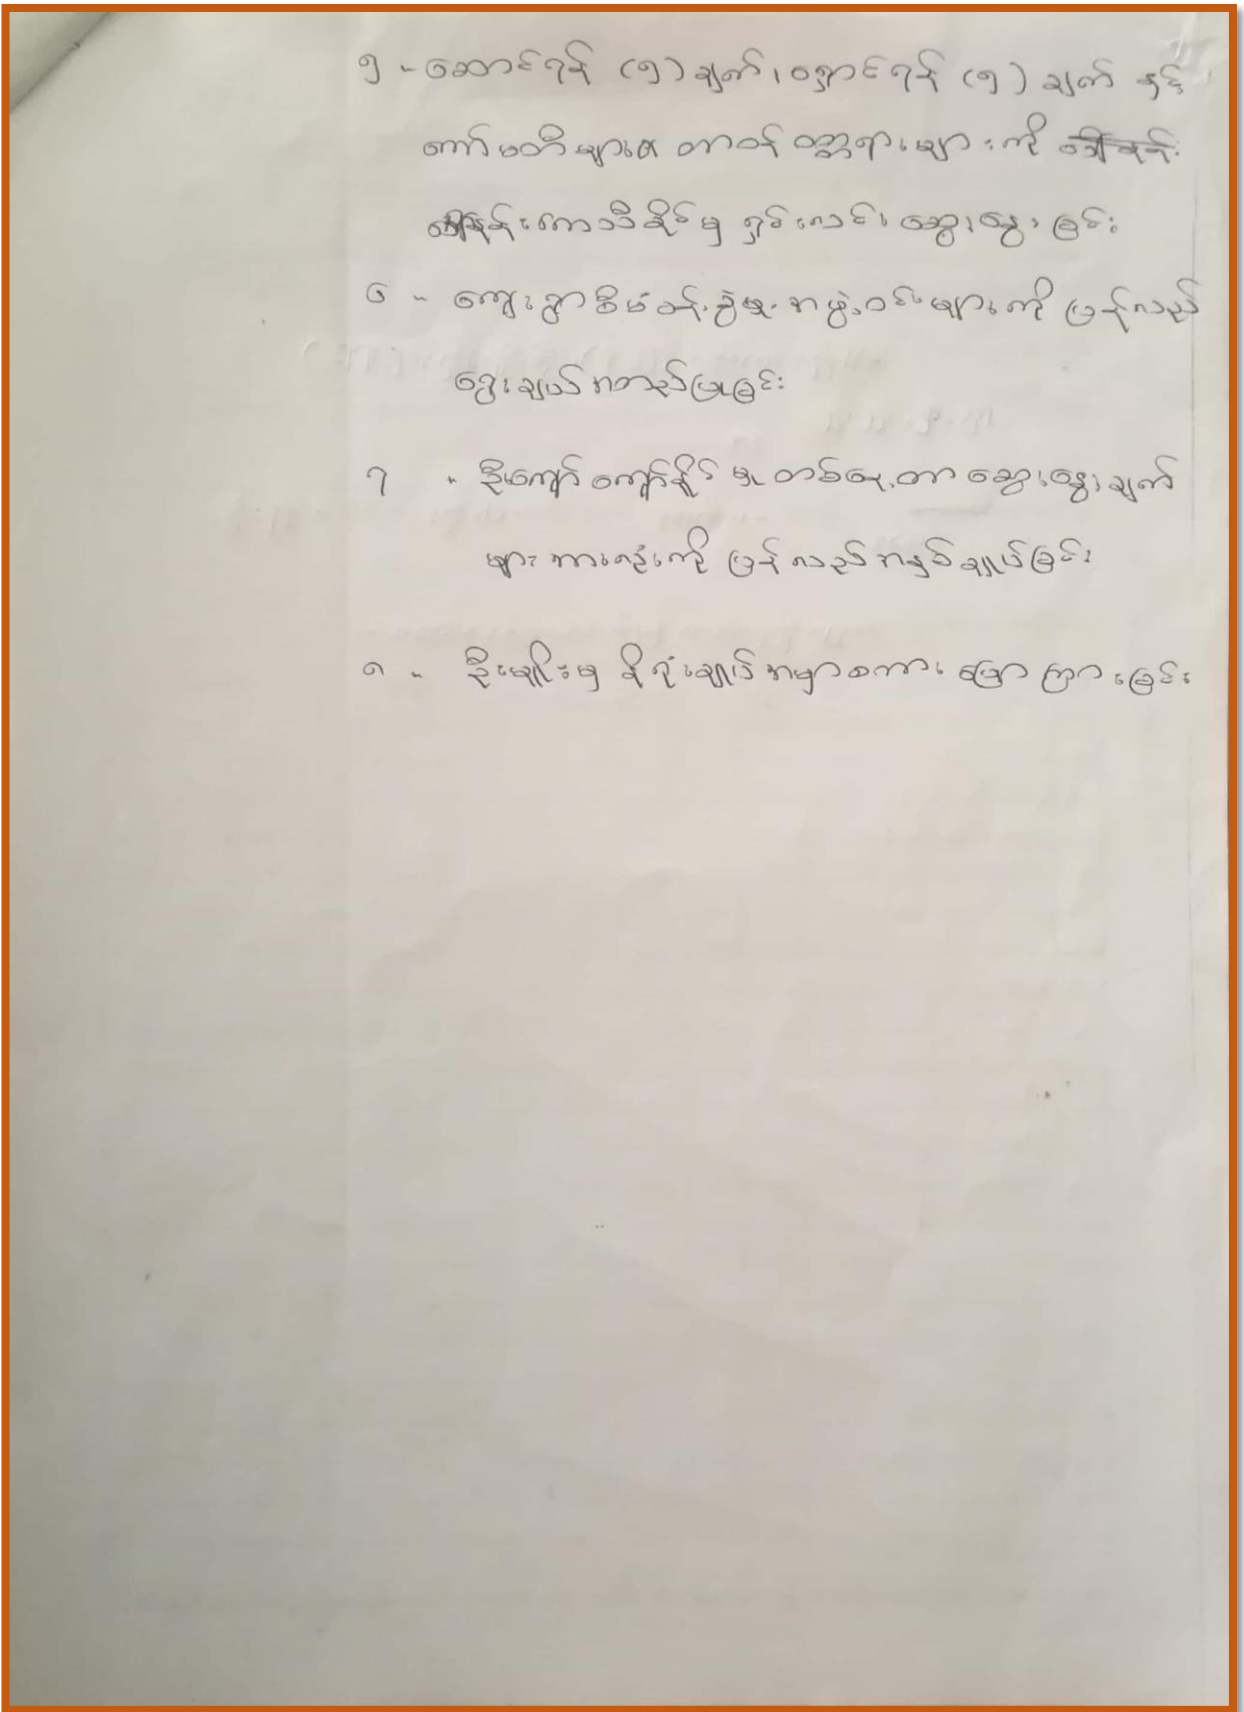 ၅ ။ ဆောင်ရန် (၅) ချက်၊ ရှောင်ရန် (၅) ချက် နှင့်
ကော်မတီများ၏ တာဝန် ဝတ္တရားများကို
ဒေါ်ခန်းကေသီခိုင်မှ ရှင်းလင်း ဆွေးနွေးခြင်း
၆ ။ ကျေးရွာစီမံခန့်ခွဲမှု အဖွဲ့ဝင်များကို ပြန်လည်
ရွေးချယ်အတည်ပြုခြင်း
၇ ။ ဦးကျော်ကျော်နိုင် မှ တစ်နေ့တာ ဆွေးနွေးချက်
များ အားလုံးကို ပြန်လည်အနှစ်ချုပ်ခြင်း
၈ ။ ဦးမျိုးမှ နိဂုံးချုပ်အမှာစကား ပြောကြားခြင်း